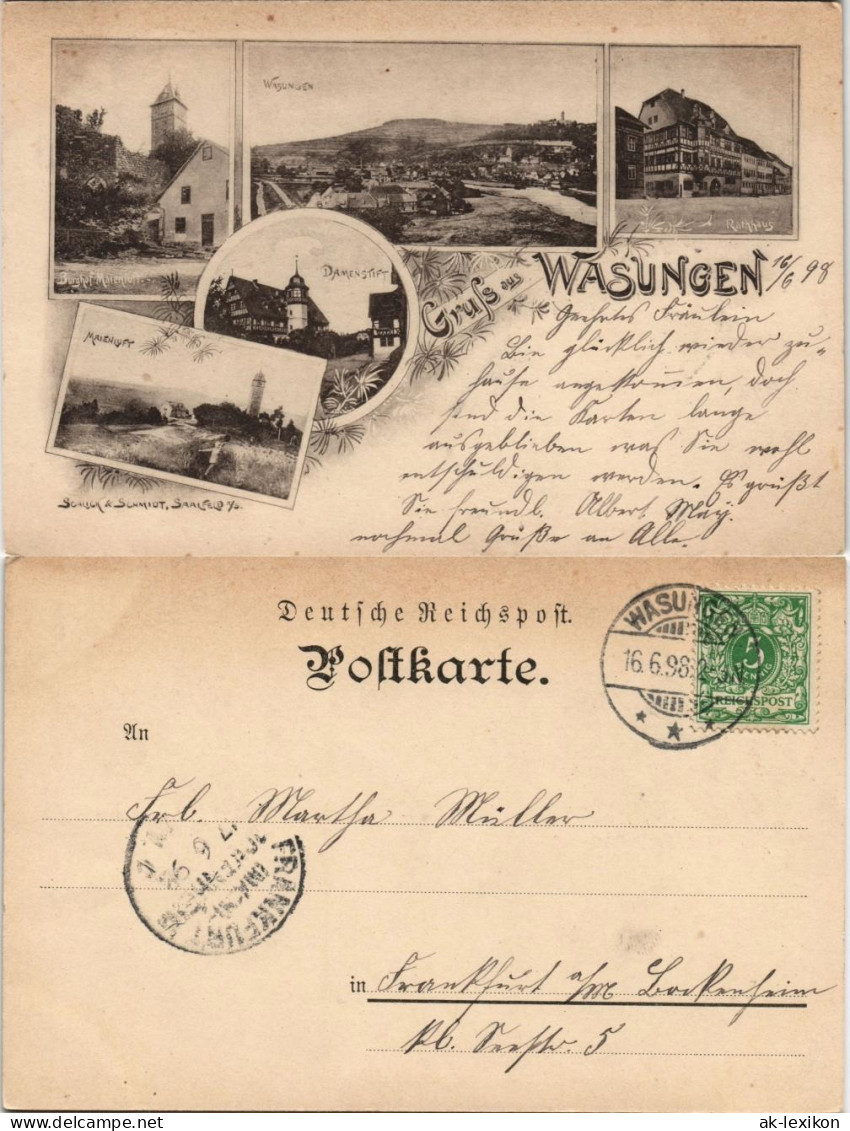 WASUNGEN
Rathhaus
Burghof Maienluft.
DAMENSTIFT
MAIENLUFT
SCHLICK & SCHMIDT, SAALFELD a/S.
Gruss aus WASUNGEN 16/6 98
Geehrtes Fräulein
Bin glücklich wieder zu„
hause angekommen, doch
sind die Karten lange
ausgeblieben was Sie wohl
entschuldigen werden. Es grüßt
Sie freundl. Albert May.
nochmal Grüße an Alle.
Deutsche Reichspost.
Postkarte.
WASUNGEN
16.6.98.
5
REICHSPOST
An
Frl. Martha Müller
17 6 98
FRANKFURT
in Frankfurt a/M Bockenheim
kl. Seestr. 5
ak-lexikon
ak-lexikon.com